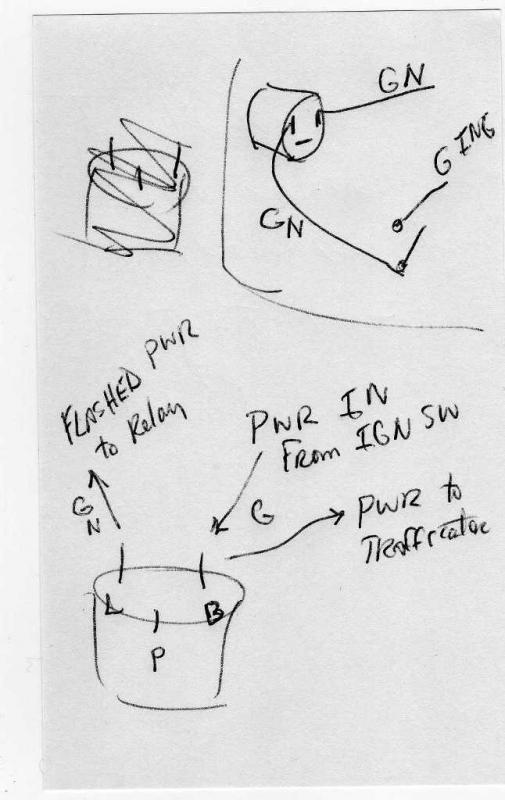 GN
G ING
GN
FLASHED PWR
to Relay
PWR IN
From IGN SW
GN
G
PWR to
L
B
P